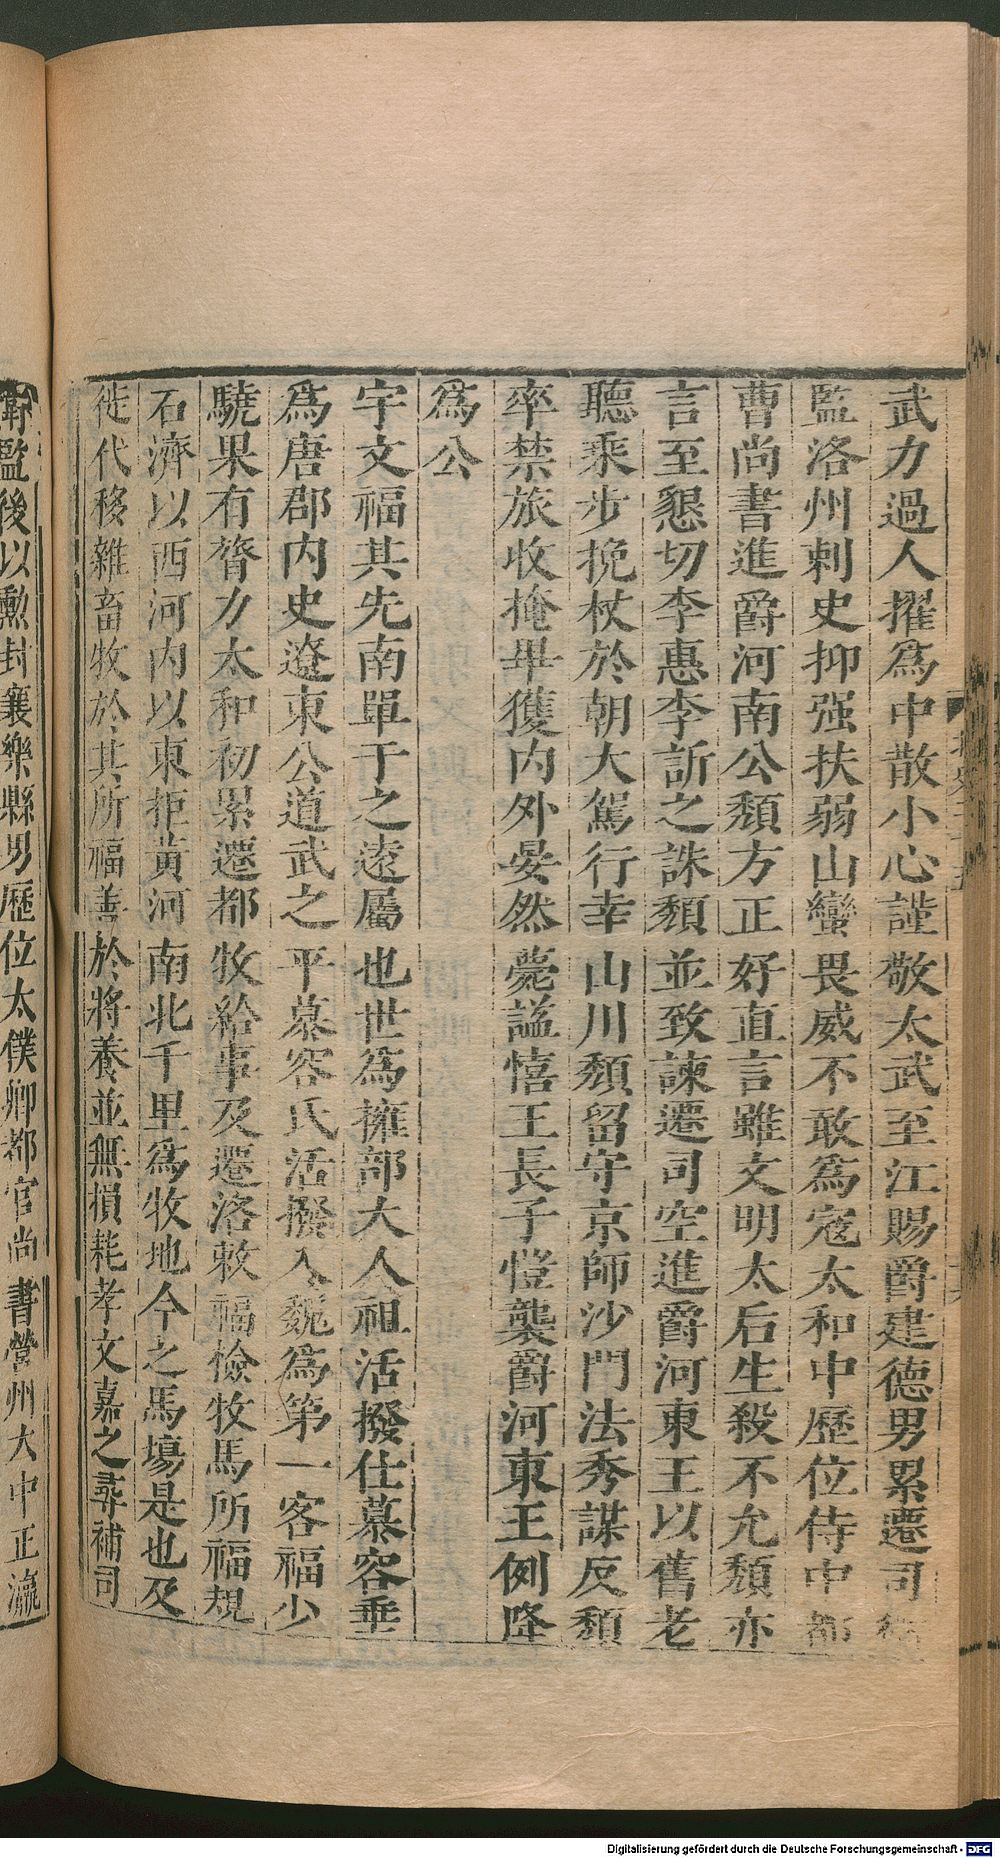 武力過人擢爲中散小心謹敬太武至江賜爵建德男累遷司衛
監洛州刺史抑强扶弱山蠻畏威不敢爲寇太和中歷位侍中都
曹尚書進爵河南公頹方正好直言雖文明太后生殺不允頹亦
言至懇切李惠李訢之誅頹並致諫遷司空進爵河東王以舊老
聽乘步挽杖於朝大駕行幸山川頹留守京師沙門法秀謀反頹
卒禁旅收掩畢獲内外晏然薨謚僖王長子愷襲爵河東王例降
爲公
宇文福其先南單于之遠屬也世爲擁部大人祖活撥仕慕容垂
爲唐郡内史遼東公道武之平慕容氏活撥入魏爲第一客福少
驍果有膂力太和初累遷都牧給事及遷洛敕福檢牧馬所福規
石濟以西河内以東拒黄河南北千里爲牧地今之馬塲是也及
徙代移雜畜牧於其所福善於將養並無損耗孝文嘉之尋補司
衛監後以勲封襄樂縣男歷位太僕卿都官尚書營州大中正瀛
Digitalisierung gefördert durch die Deutsche Forschungsgemeinschaft - DFG